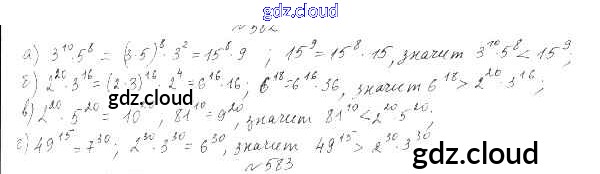 gdz.cloud
№ 582
а) 3¹⁰·5⁸ = (3·5)⁸·3² = 15⁸·9 ; 15⁹ = 15⁸·15, значит 3¹⁰·5⁸ < 15⁹;
б) 2²⁰·3¹⁶ = (2·3)¹⁶·2⁴ = 6¹⁶·16; 6¹⁸ = 6¹⁶·36, значит 6¹⁸ > 2²⁰·3¹⁶;
gdz.cloud
в) 2²⁰·5²⁰ = 10²⁰, 81¹⁰ = 9²⁰, значит 81¹⁰ < 2²⁰·5²⁰;
г) 49¹⁵ = 7³⁰; 2³⁰·3³⁰ = 6³⁰, значит 49¹⁵ > 2³⁰·3³⁰
gdz.cloud
№ 583
gdz.cloud